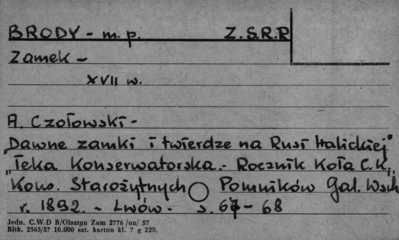 BRODY - m. p. Z.S.R.R
Zamek -
XVII w.
A. Czołowski -
"Dawne zamki i twierdze na Rusi Halickiej"
"Teka Konserwatorska. - Rocznik Koła C.K.
Kons. Starożytnych Pomników Gal. Wsch
r. 1892. - Lwów. - s. 67 - 68
Jedn. C.W.D B/Olsztyn Zam 2776 /on/ 57
Bltk. 2563/57 10.000 szt. karton kl. 7 g 220.